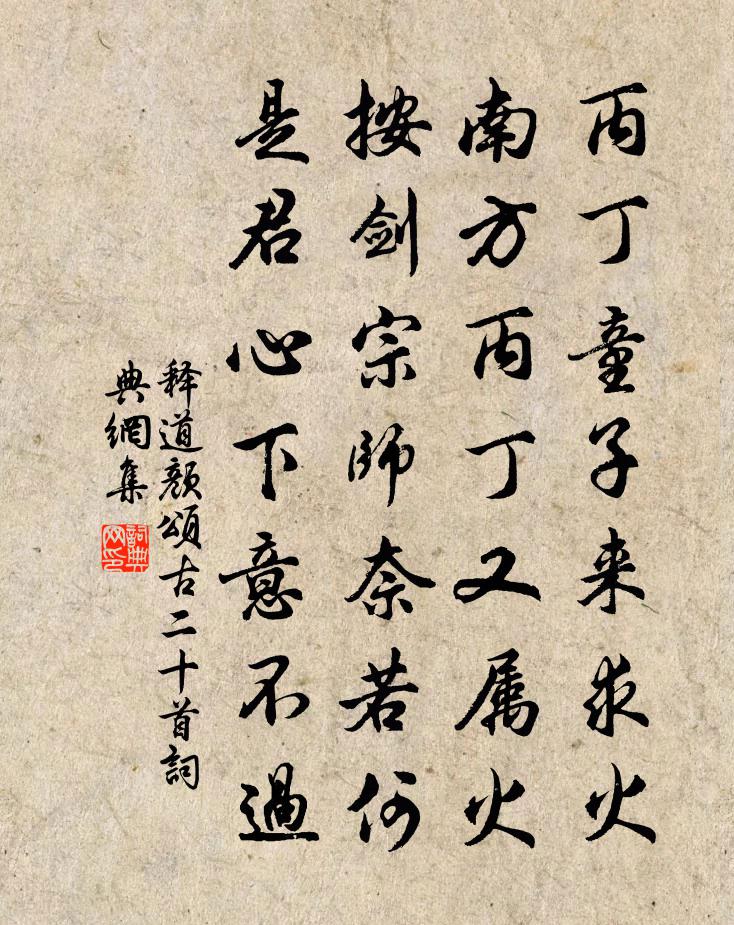 丙丁童子来求火
南方丙丁又属火
按剑宗師奈若何
是君心下意不過
释道颜頌古二十首詞
典網集
詞典
网印